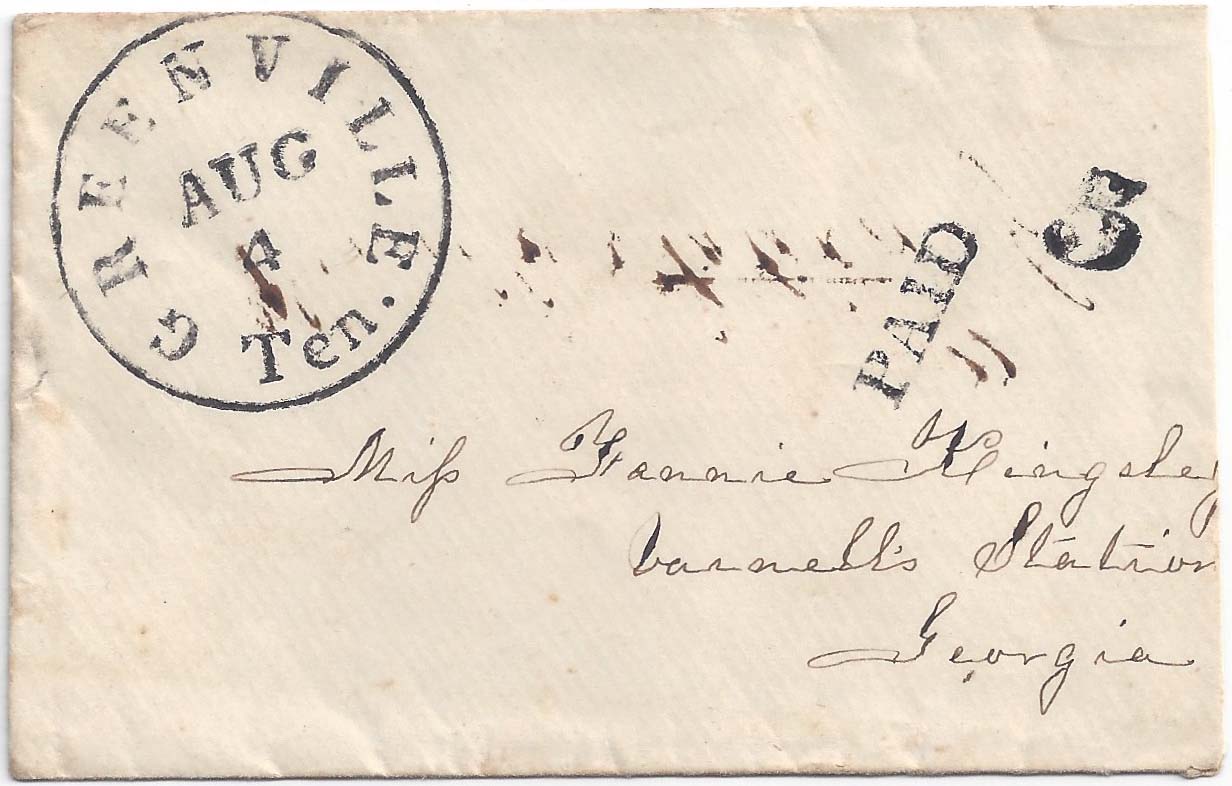 GREENVILLE
AUG
4
Ten.
PAID
5
Miss Fannie Kingsley
Varnell's Station
Georgia